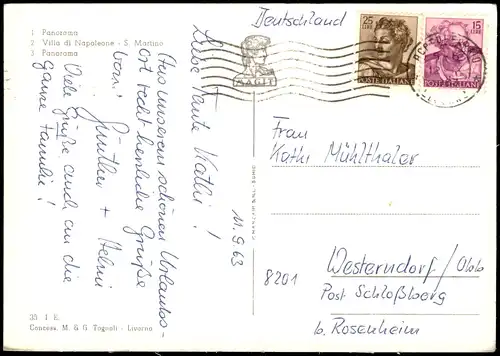 1 Panorama
2 Villa di Napoleone - S. Martino
3 Panorama
Deutschland
25
LIRE
POSTE ITALIANE
15
LIRE
POSTE ITALIANE
Liebe Tante Kathi!
Aus unserem schönen Urlaubs-
ort recht herzliche Grüße
von:
Günther + Helmi
Viele Grüße auch an die
ganze Familie!
11.9.63
Frau
Kathi Mühlthaler
8201
Westerndorf/Obb
Post Schloßberg
b. Rosenheim
35 1 E.
Concess. M. & G. Tognoli - Livorno